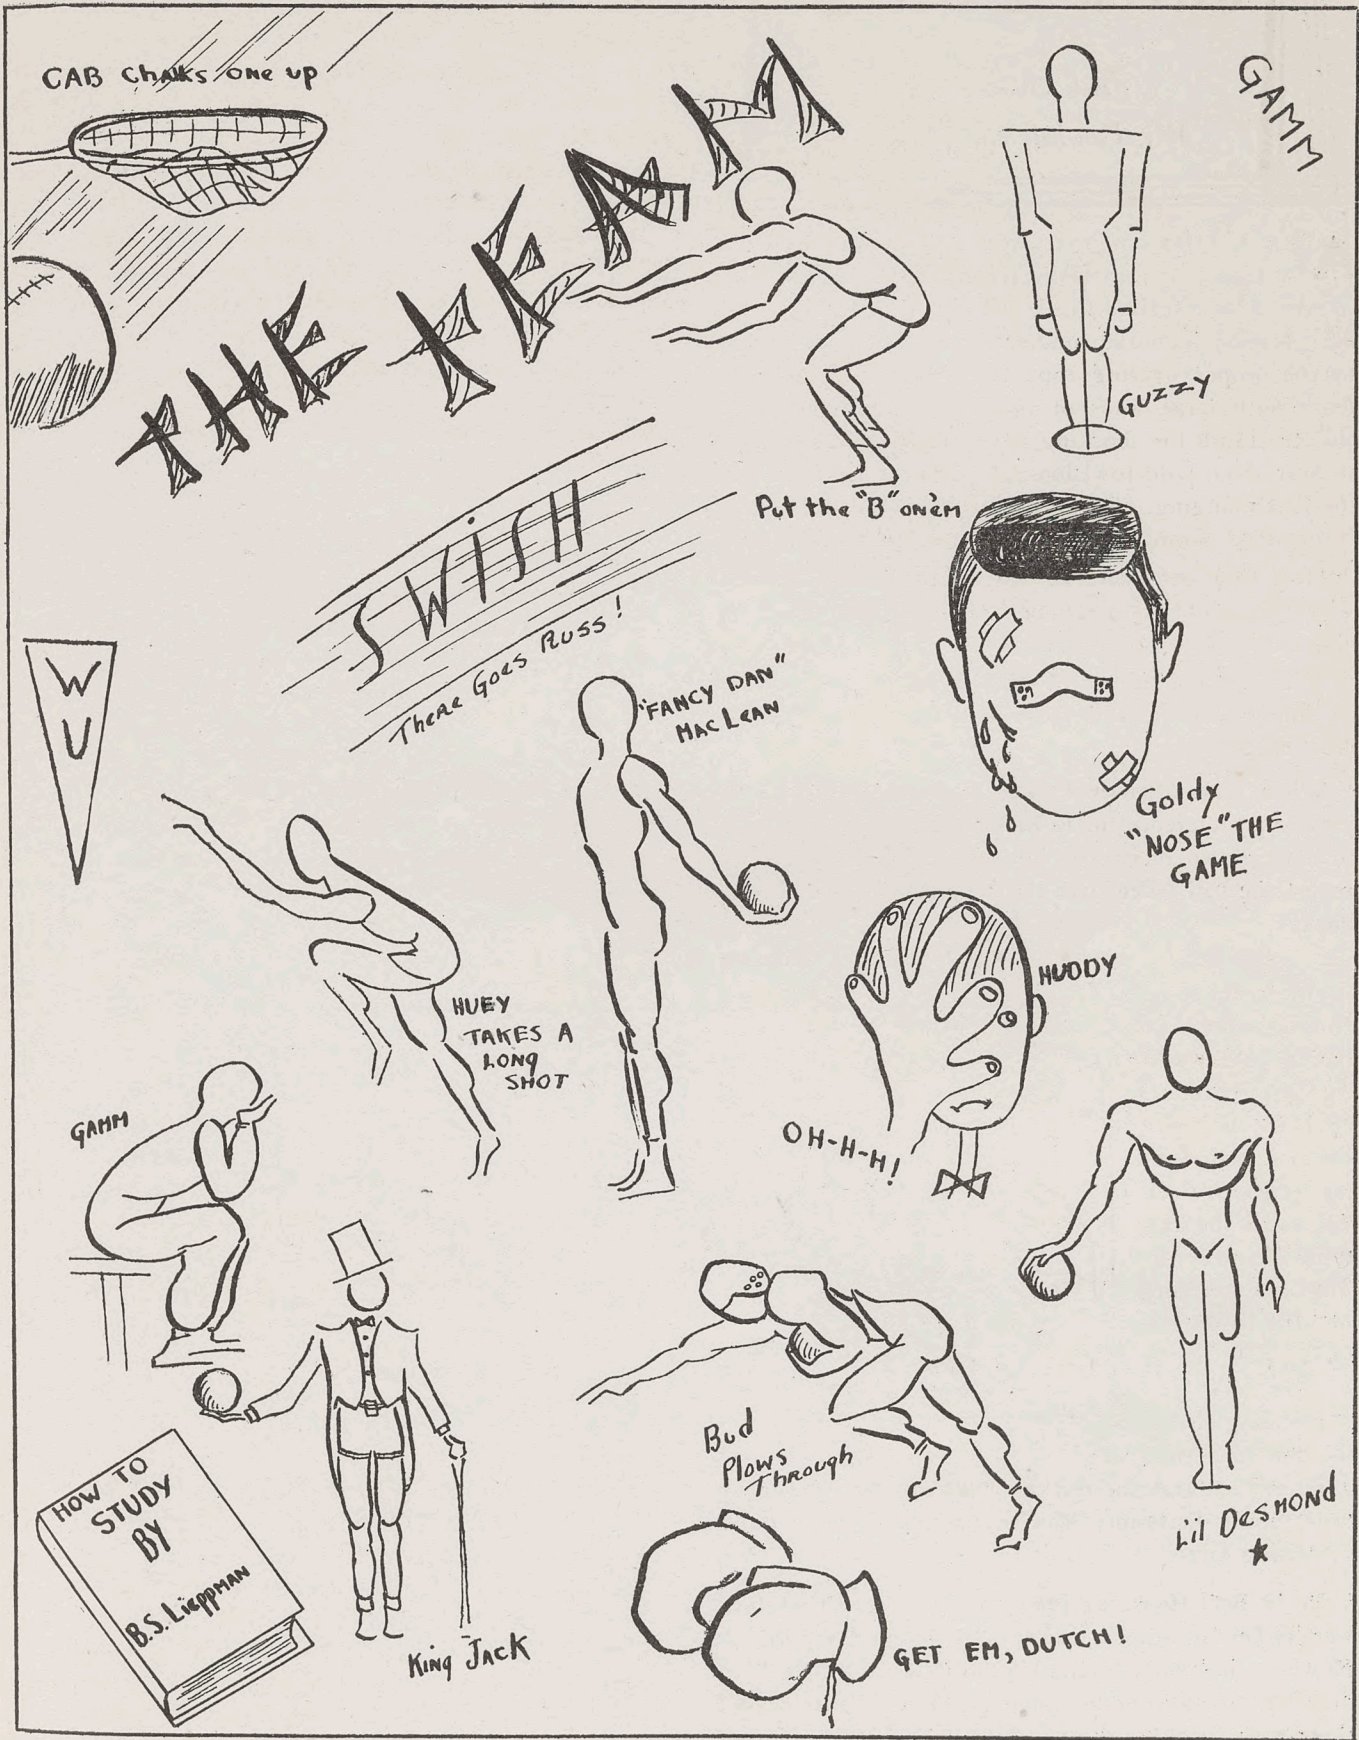 CAB Chalks one up
THE TEAM
GAMM
GUZZY
Put the "B" on'em
SWISH
There Goes Russ!
W
U
"FANCY DAN"
MacLean
Goldy
"NOSE" THE
GAME
HUEY
TAKES A
LONG
SHOT
HUDDY
OH-H-H!
GAMM
Bud
Plows
Through
HOW TO
STUDY
BY
B.S. Lieppman
King Jack
L'il Desmond
GET EM, DUTCH!